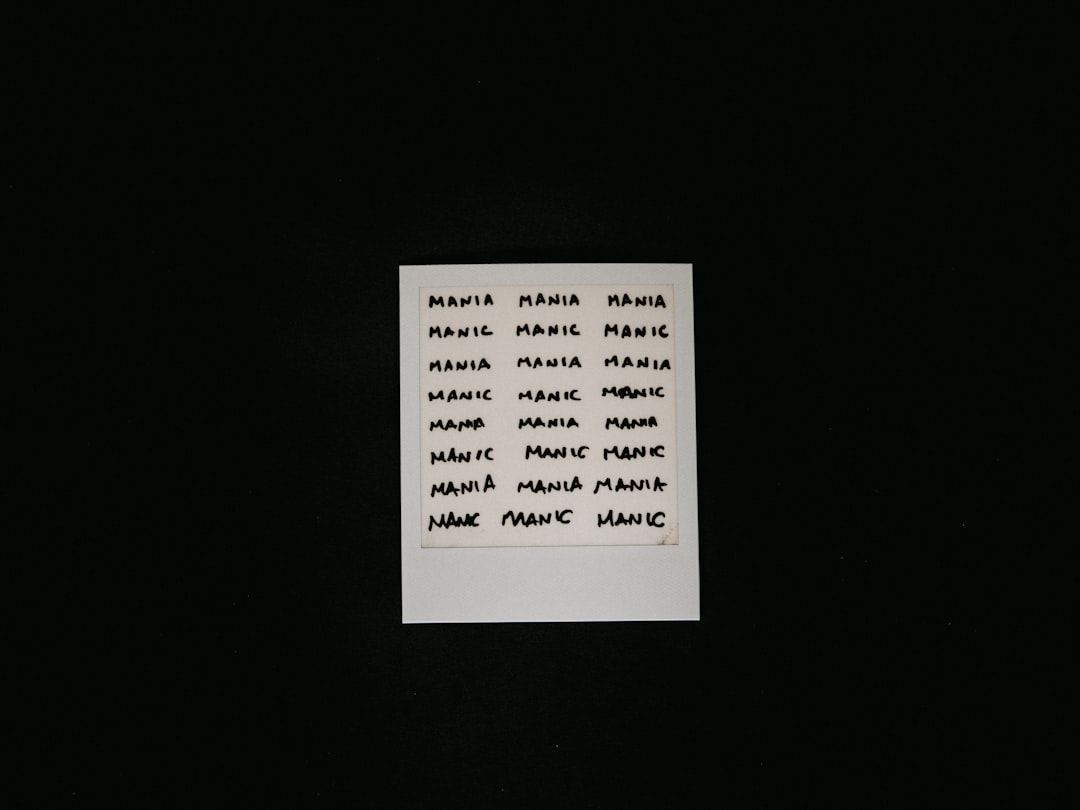 MANIA MANIA MANIA
MANIC MANIC MANIC
MANIA MANIA MANIA
MANIC MANIC MANIC
MANIA MANIA MANIA
MANIC MANIC MANIC
MANIA MANIA MANIA
MANIC MANIC MANIC